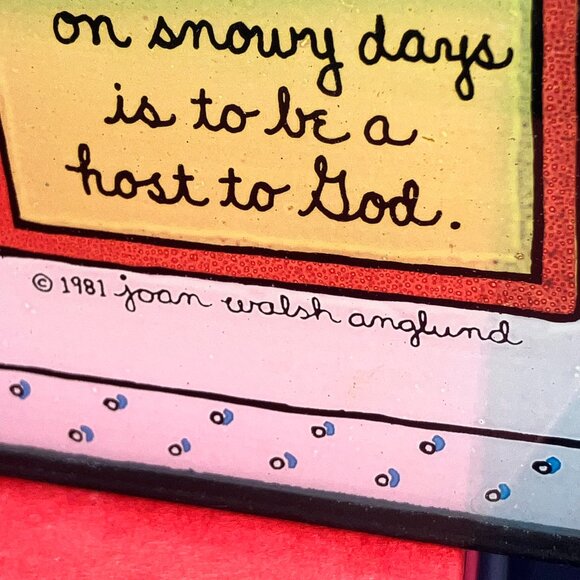 on snowy days
is to be a
host to God.
© 1981 joan walsh anglund